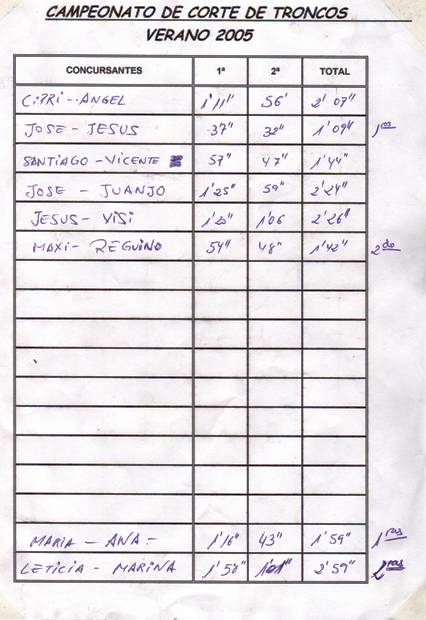 CAMPEONATO DE CORTE DE TRONCOS
VERANO 2005
CONCURSANTES 1ª 2ª TOTAL
CiPRi - ANGEL 1'11" 56' 2' 07"
JOSE - JESUS 37" 32" 1'09" 1ros
SANTIAGO - VICENTE 57" 47" 1'44"
JOSE - JUANJO 1'25" 59" 2'24"
JESUS - VISI 1'20" 1'06 2'26"
MAXI - REGUINO 54" 48" 1'42" 2do
MARIA - ANA - 1'16" 43" 1'59" 1ras
LETICIA - MARINA 1'58" 1'01" 2'59" 2ras